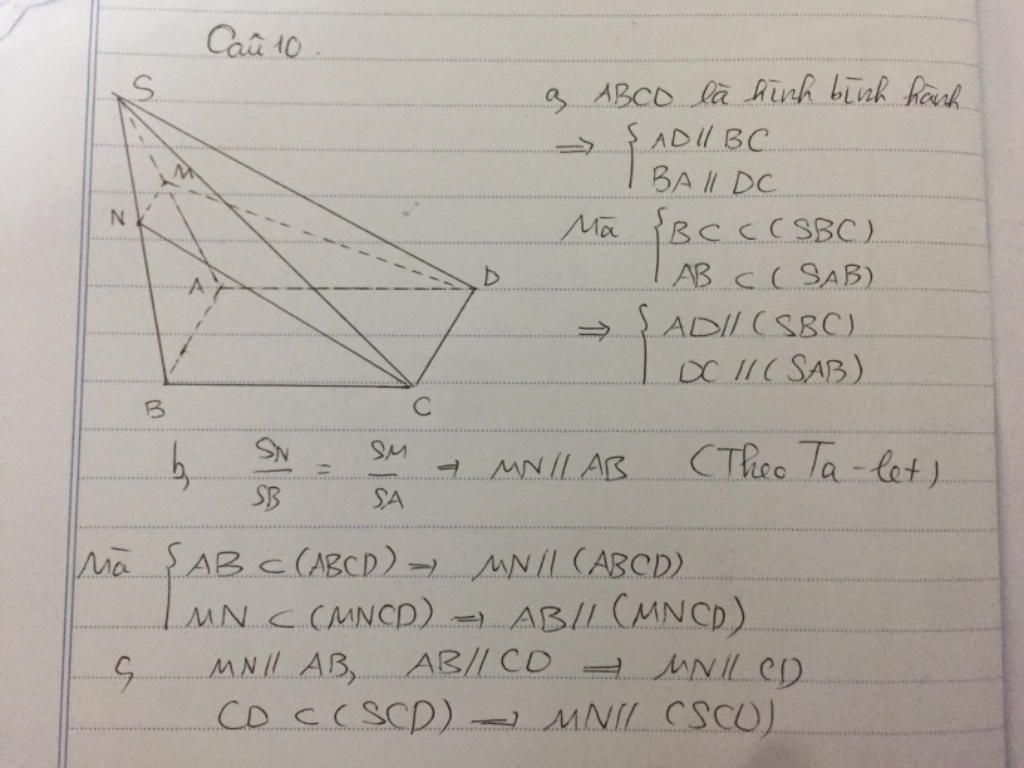 Câu 10.
S
M
N
A
D
B
C
a, ABCD là hình bình hành
⇒ { AD // BC
BA // DC
Mà { BC ⊂ (SBC)
AB ⊂ (SAB)
⇒ { AD // (SBC)
DC // (SAB)
b, SN/SB = SM/SA → MN // AB (Theo Ta-let)
Mà { AB ⊂ (ABCD) ⇒ MN // (ABCD)
MN ⊂ (MNCD) ⇒ AB // (MNCD)
c, MN // AB, AB // CD ⇒ MN // CD
CD ⊂ (SCD) ⇒ MN // (SCD)